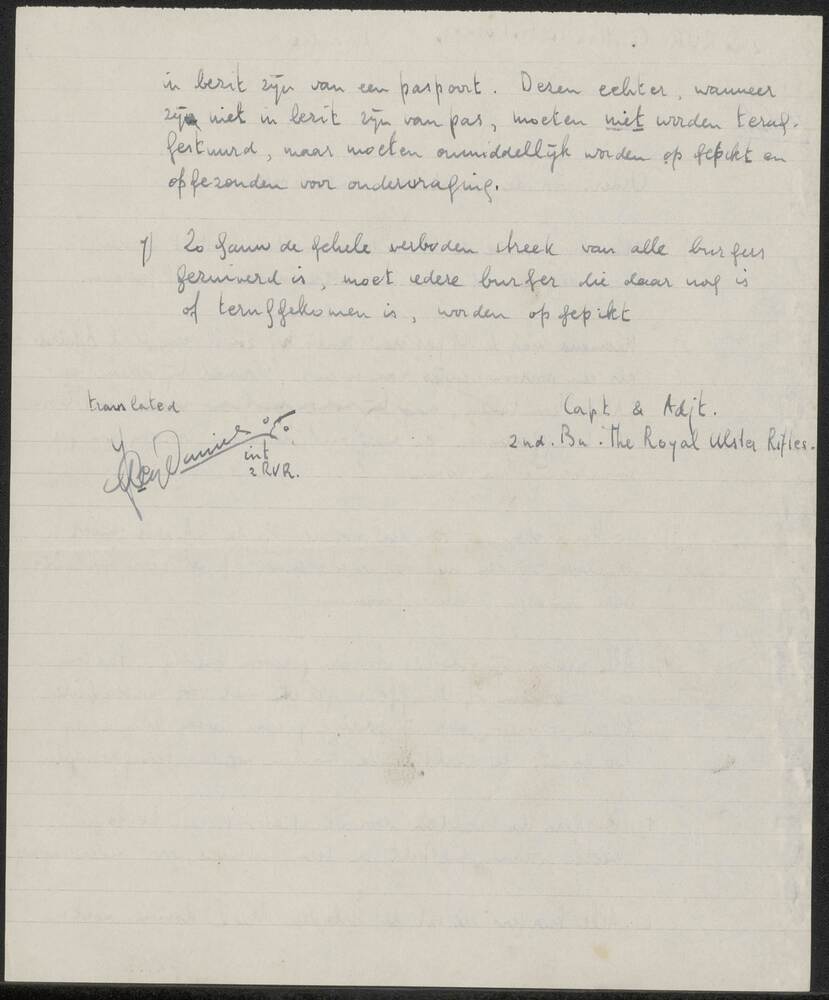 in bezit zijn van een paspoort. Dezen echter, wanneer
zij niet in bezit zijn van pas, moeten niet worden terug-
gestuurd, maar moeten onmiddellijk worden op gepikt en
opgezonden voor ondervraging.
7) Zo gauw de gehele verboden streek van alle burgers
gezuiverd is, moet iedere burger die daar nog is
of teruggekomen is, worden opgepikt
translated
Capt & Adjt.
2nd. Bn. The Royal Ulster Rifles.
int
2 RUR.